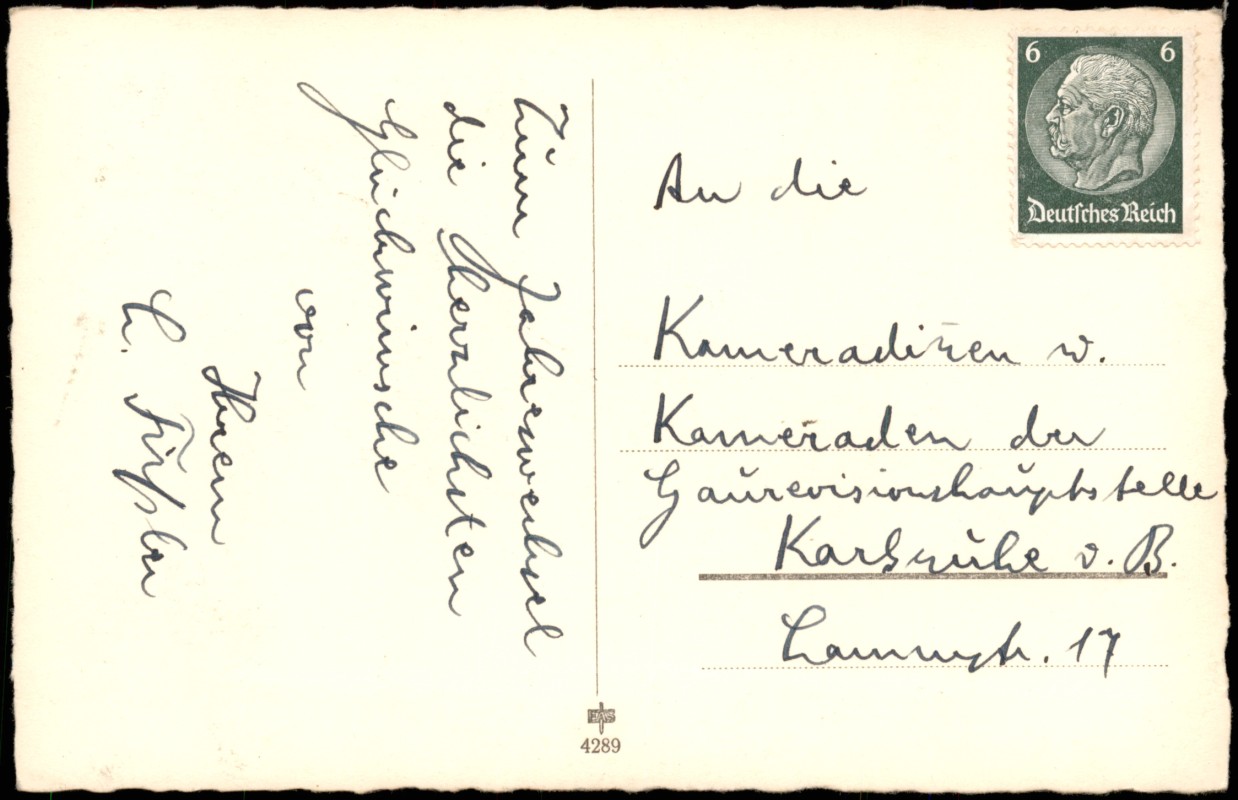 Zum Jahreswechsel
die herzlichsten
Glückwünsche
von
Ihrem
6 6
Deutsches Reich
An die
Kameradinen u.
Kameraden der
Gaurevisionshauptstelle
Karlsruhe i. B.
Lammstr. 17
EAS
4289